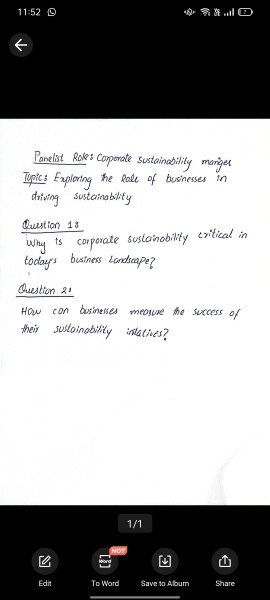 11:52
Panelist Role: Corporate sustainability manger
Topic: Exploring the Role of businesses in
driving sustainability
Question 1:
Why is corporate sustainability critical in
today's business landscape?
Question 2:
How can businesses measure the success of
their sustainability initatives?
1/1
HOT
Word
Edit
To Word
Save to Album
Share